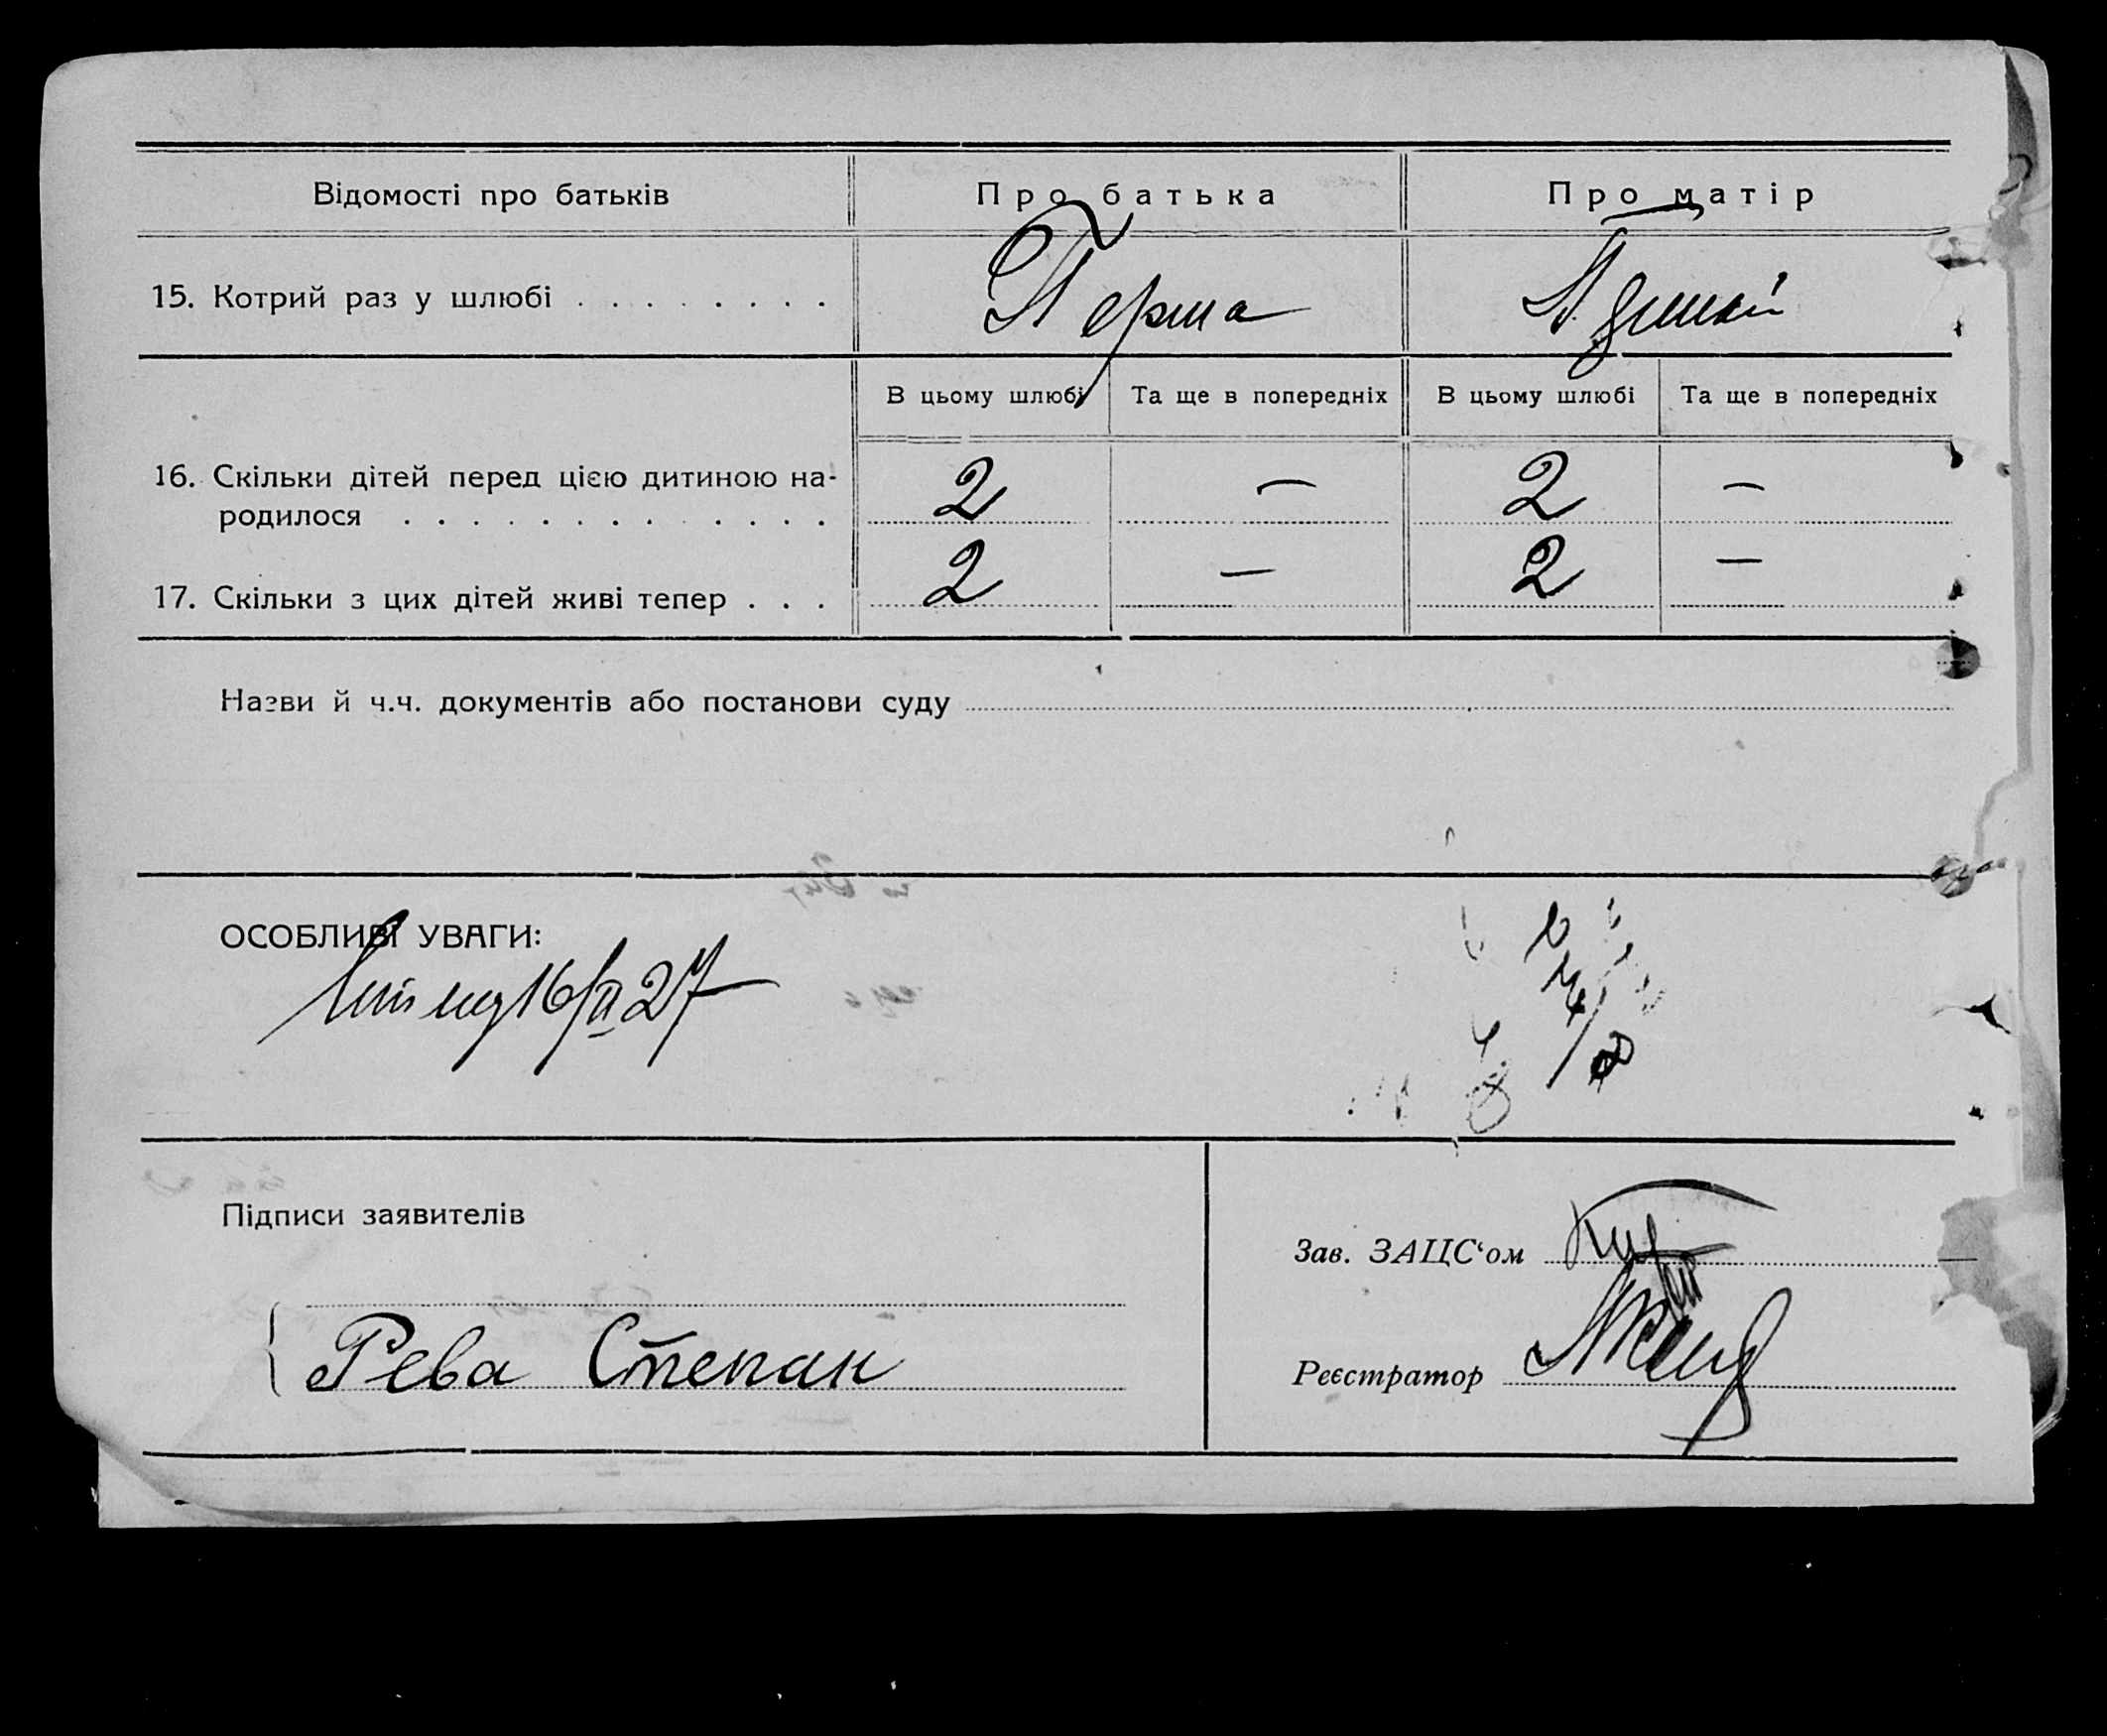 Відомості про батьків
Про батька
Про матір
15. Котрий раз у шлюбі . . . . . . . .
Перша
В цьому шлюбі
Та ще в попередніх
В цьому шлюбі
Та ще в попередніх
16. Скільки дітей перед цією дитиною на-
родилося . . . . . . . . . . . . .
2 — 2 —
17. Скільки з цих дітей живі тепер . . .
2 — 2 —
Назви й ч.ч. документів або постанови суду
ОСОБЛИВІ УВАГИ:
16/II 27
Підписи заявителів
Зав. ЗАЦС‘ом
Рева Степан
Реєстратор